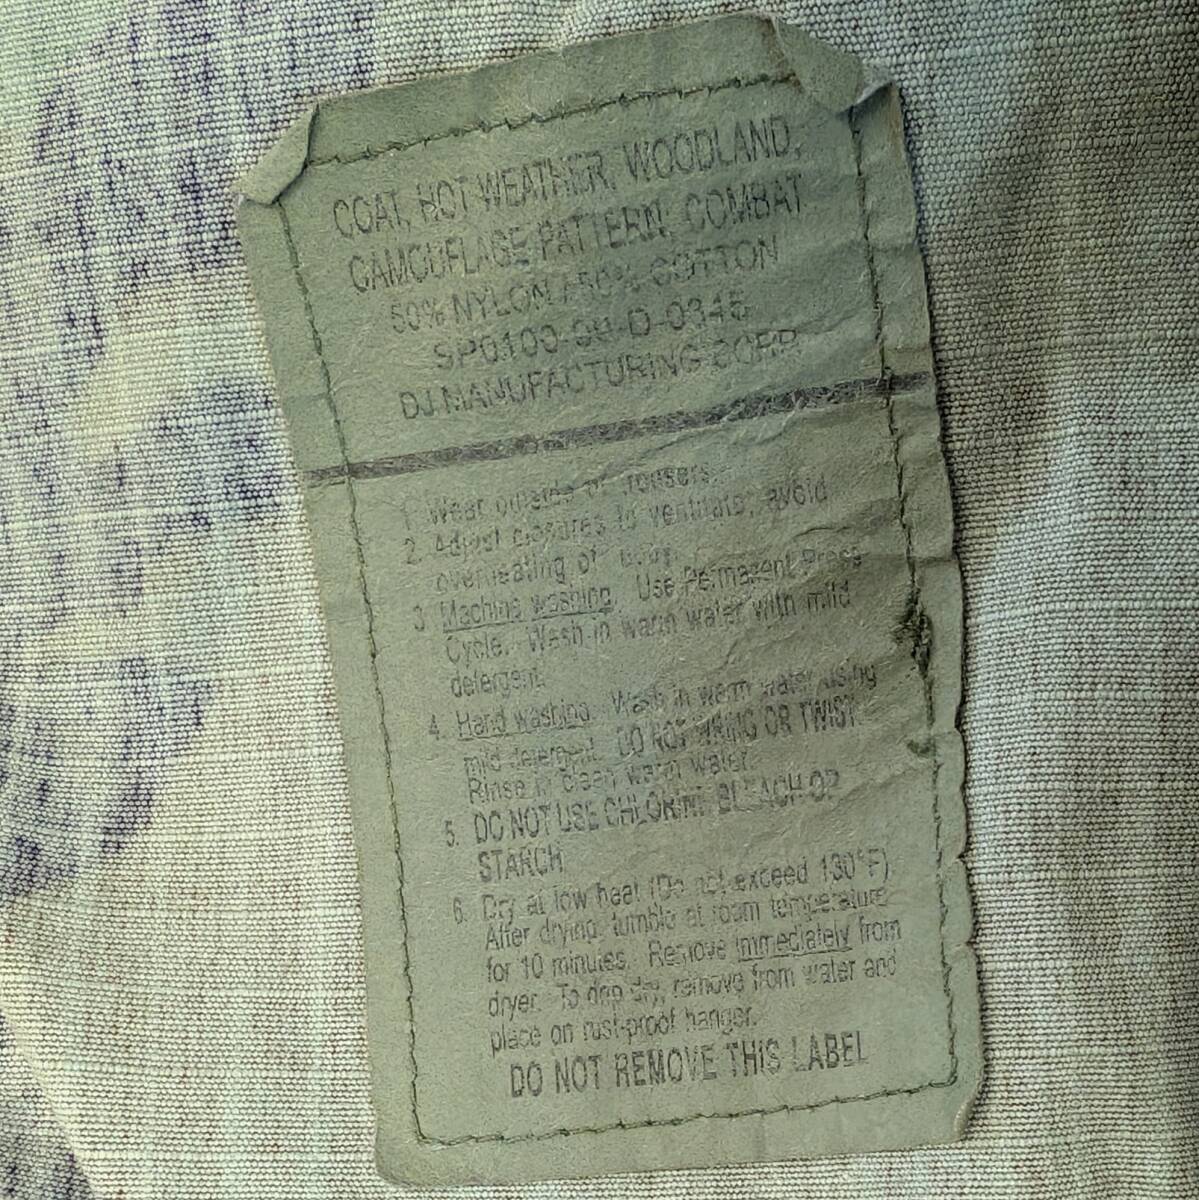 COAT, HOT WEATHER, WOODLAND,
CAMOUFLAGE PATTERN, COMBAT
50% NYLON / 50% COTTON
DJ MANUFACTURING CORP.
1. Wear outside of trousers.
2. Adjust closures to ventilate; avoid
overheating of body.
3. Machine washing: Use Permanent Press
Cycle. Wash in warm water with mild
detergent.
4. Hand washing: Wash in warm water using
mild detergent. DO NOT WRING OR TWIST.
Rinse in clean warm water.
5. DO NOT USE CHLORINE BLEACH OR
STARCH
6. Dry at low heat (Do not exceed 130°F)
After drying, tumble at room temperature
for 10 minutes. Remove immediately from
dryer. To drip dry, remove from water and
place on rust-proof hanger.
DO NOT REMOVE THIS LABEL